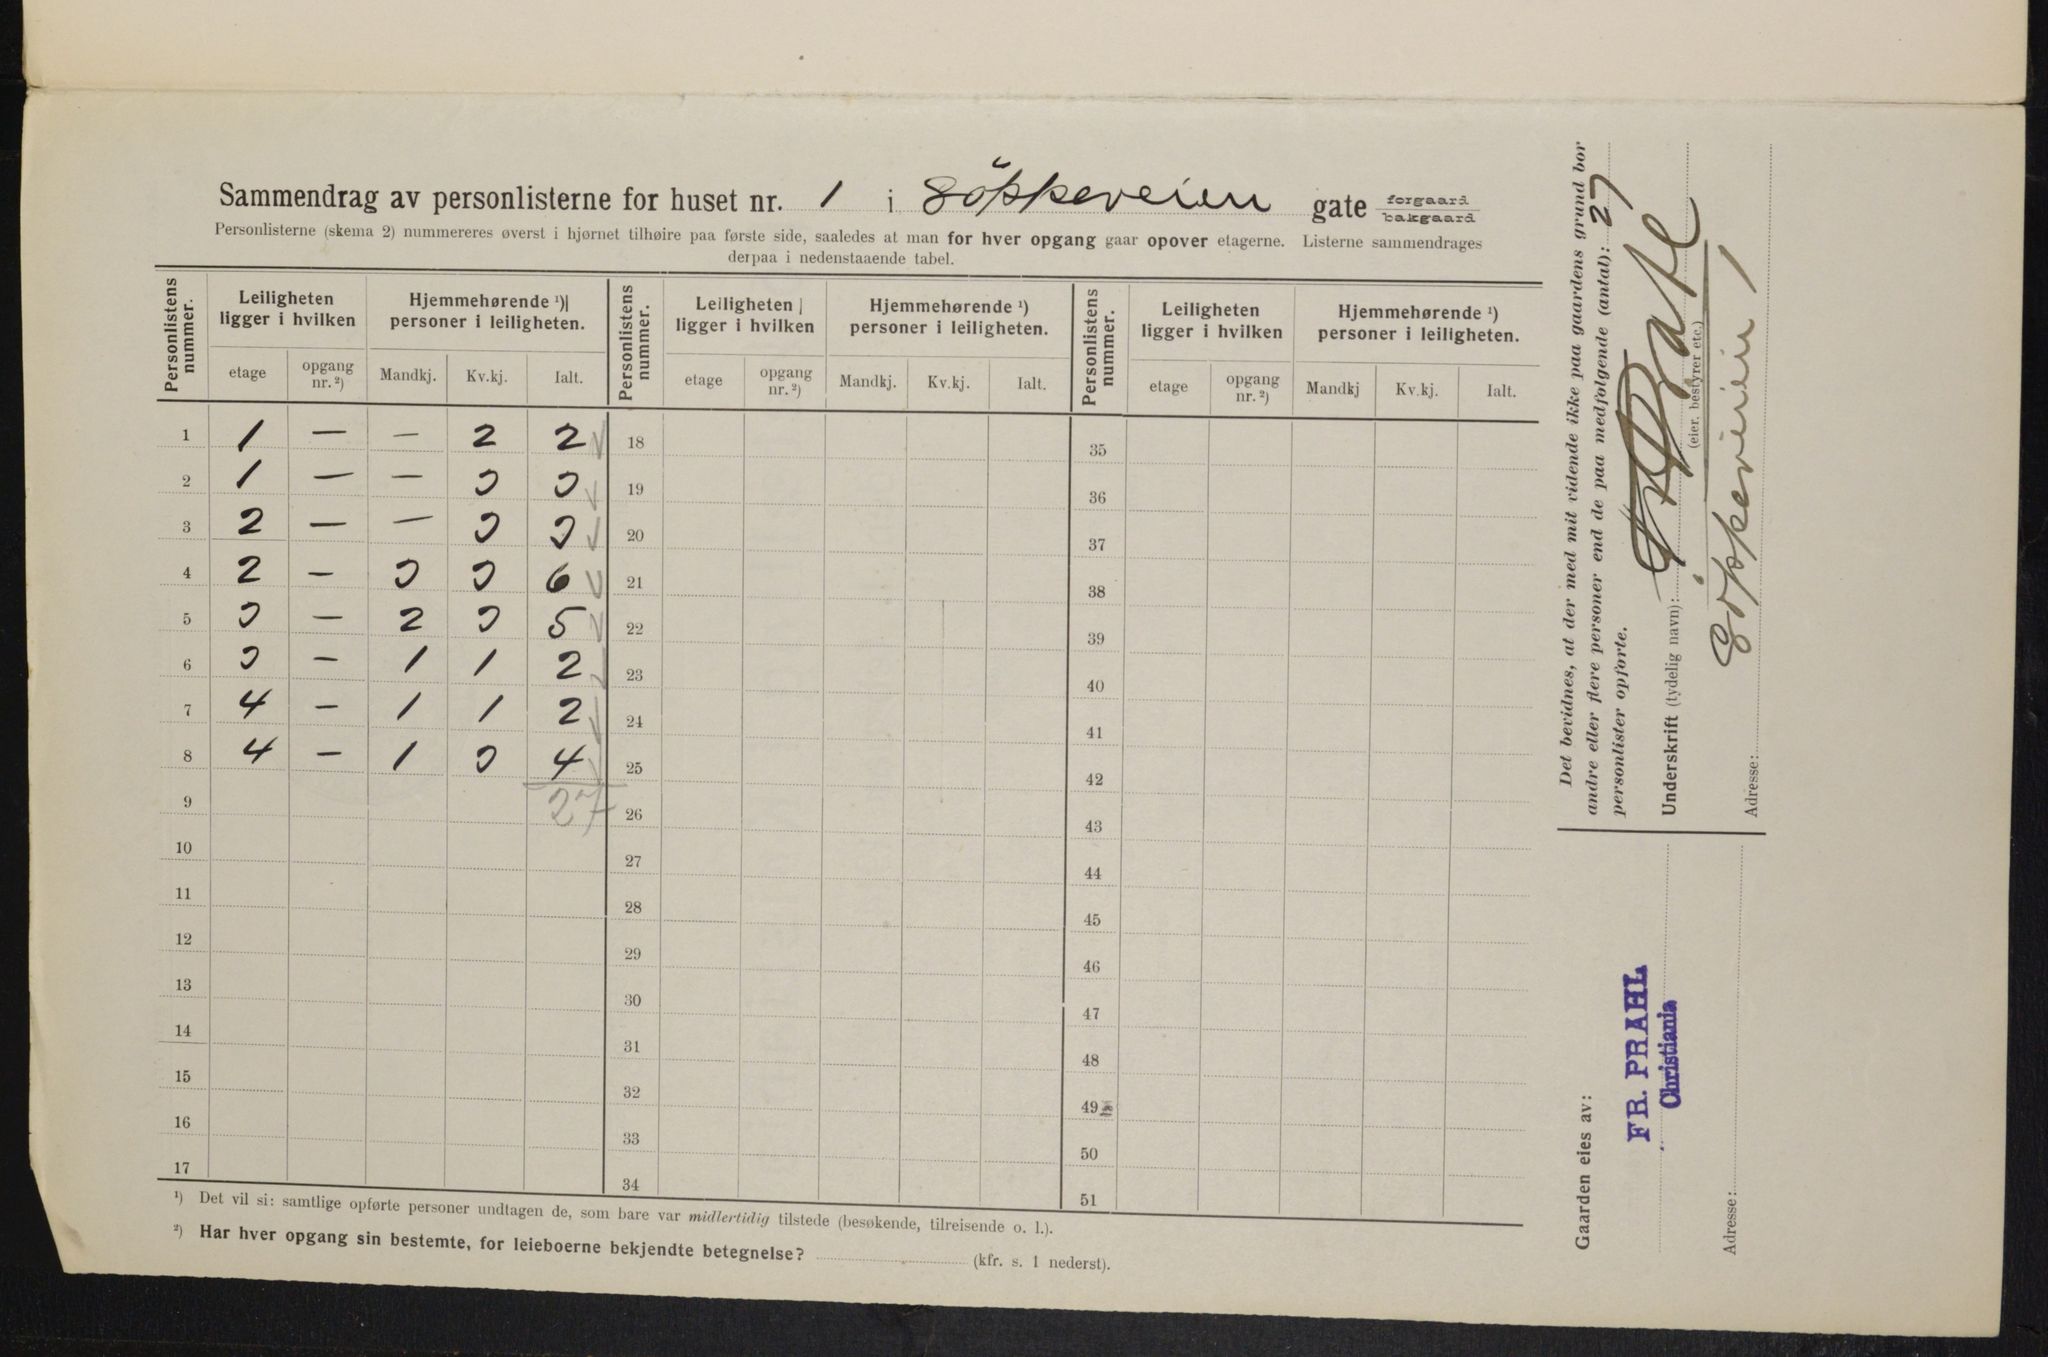 Sammendrag av personlisterne for huset nr. 1 i Göpkeveien gate forgaard bakgaard
Personlisterne (skema 2) nummereres øverst i hjørnet tilhøire paa første side, saaledes at man for hver opgang gaar opover etagerne. Listerne sammendrages
derpaa i nedenstaaende tabel.
Personlistens nummer. Leiligheten ligger i hvilken Hjemmehørende ¹) personer i leiligheten. Personlistens nummer. Leiligheten ligger i hvilken Hjemmehørende ¹) personer i leiligheten. Personlistens nummer. Leiligheten ligger i hvilken Hjemmehørende ¹) personer i leiligheten.
etage opgang nr. ²) Mandkj. Kv.kj. Ialt. etage opgang nr. ²) Mandkj. Kv.kj. Ialt. etage opgang nr. ²) Mandkj Kv.kj. Ialt.
1 1 — — 2 2 18 35
2 1 — — 3 3 19 36
3 2 — — 3 3 20 37
4 2 — 3 3 6 21 38
5 3 — 2 3 5 22 39
6 3 — 1 1 2 23 40
7 4 — 1 1 2 24 41
8 4 — 1 3 4 25 42
9 27 26 43
10 27 44
11 28 45
12 29 46
13 30 47
14 31 48
15 32 49
16 33 50
17 34 51
¹) Det vil si: samtlige opførte personer undtagen de, som bare var midlertidig tilstede (besøkende, tilreisende o. l.).
²) Har hver opgang sin bestemte, for leieboerne bekjendte betegnelse? (kfr. s. 1 nederst).
Det bevidnes, at der med mit vidende ikke paa gaardens grund bor
andre eller flere personer end de paa medfølgende (antal): 27
personlister opførte.
Underskrift (tydelig navn): Fr Prahl
(eier, bestyrer etc.)
Adresse: Göpkeveien 1
Gaarden eies av:
FR. PRAHL
Christiania
Adresse: